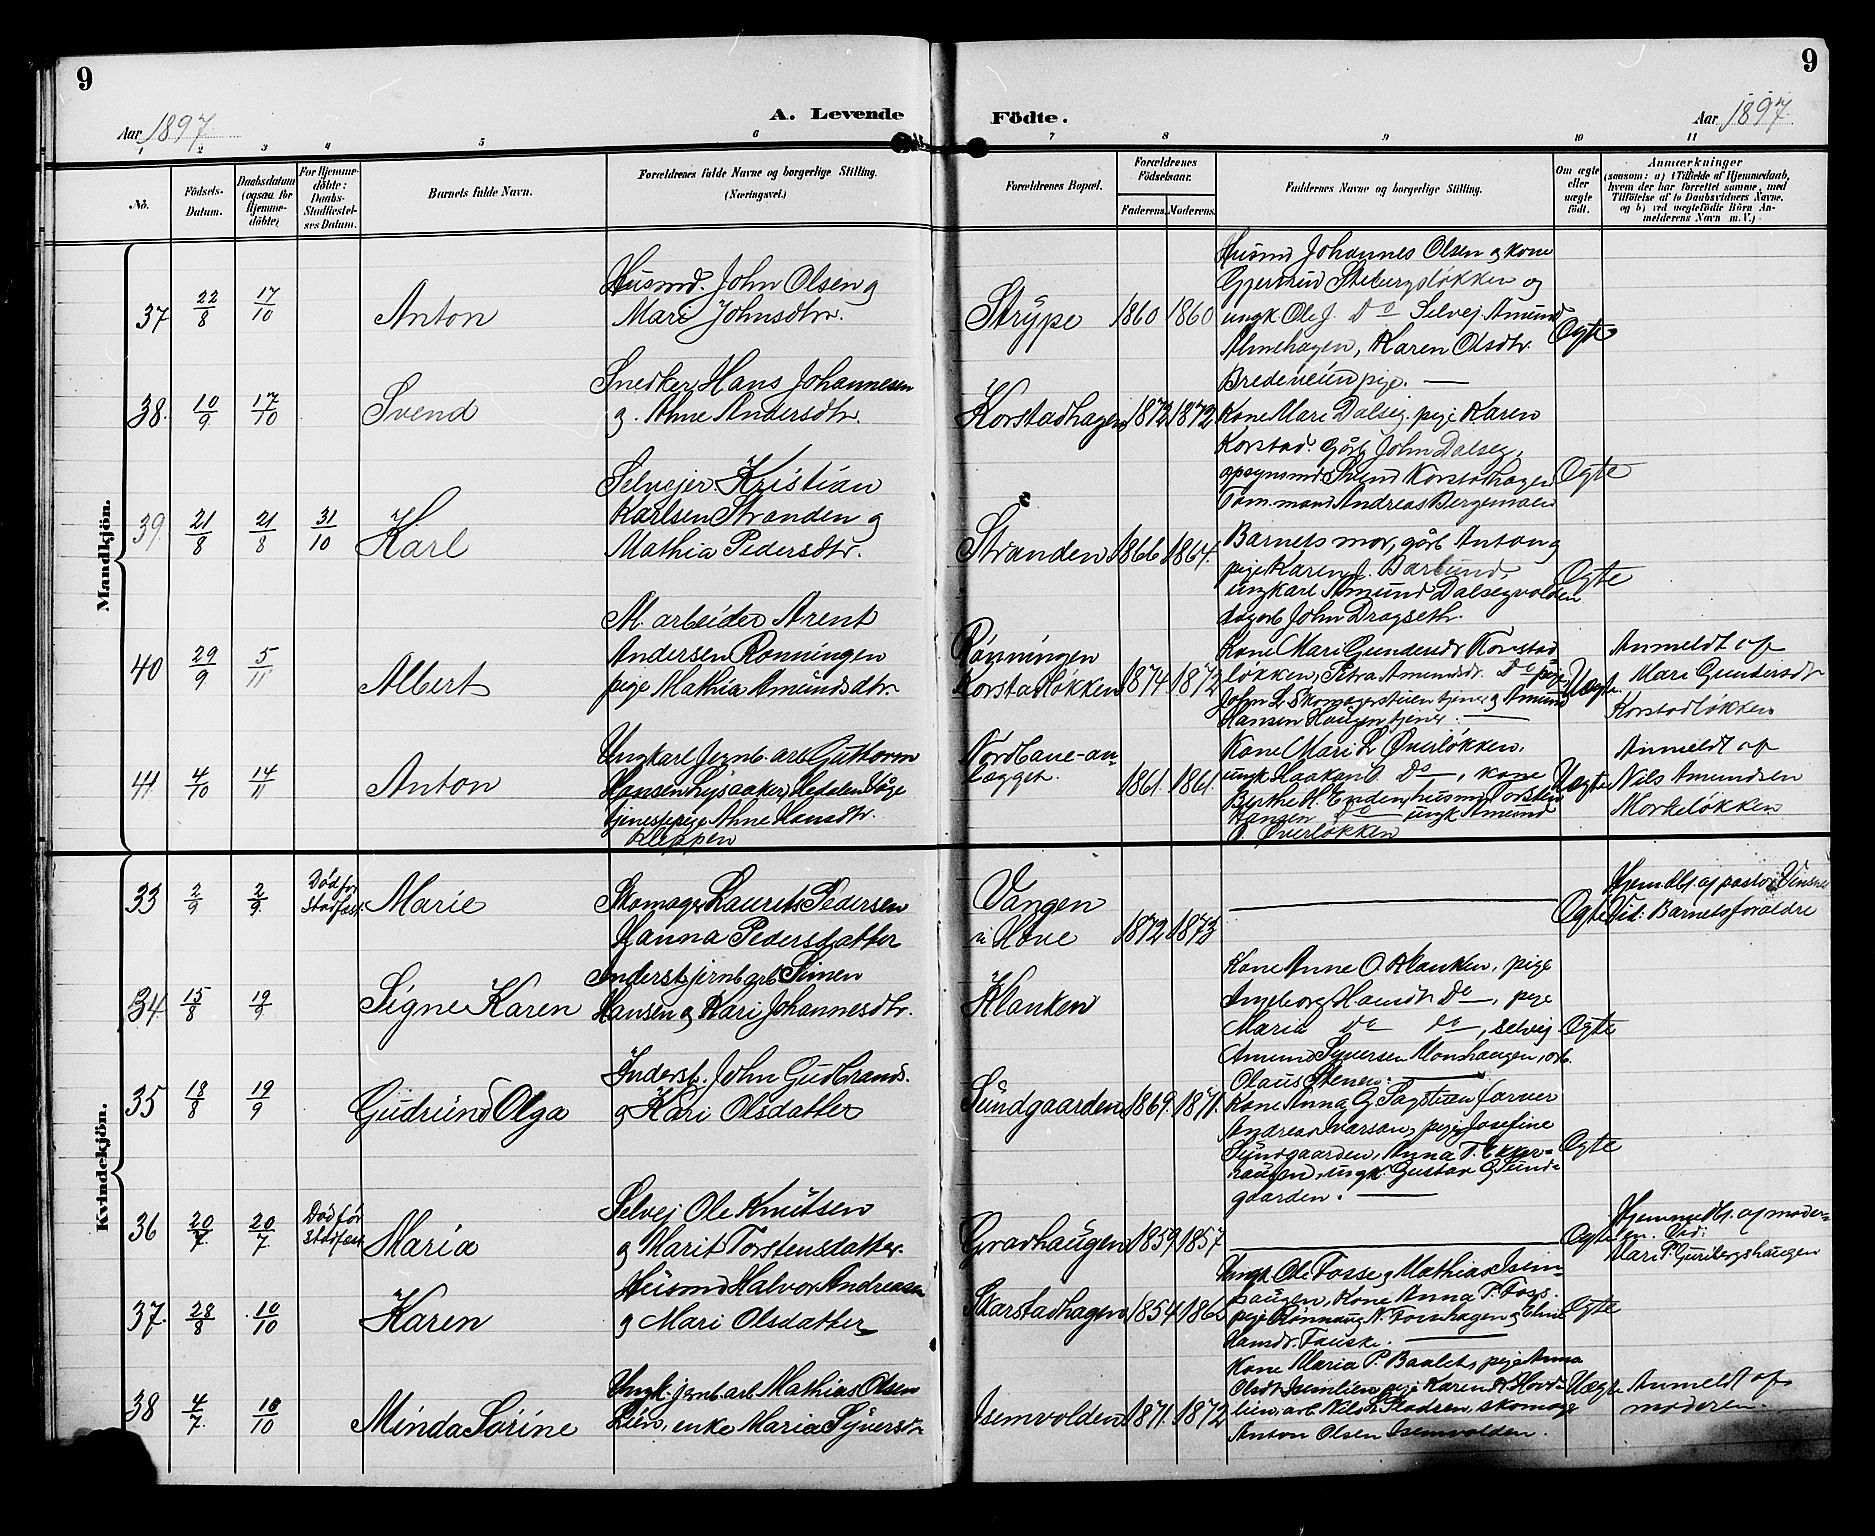 9
9
A. Levende Födte.
Aar 1897.
Aar 1897.
1 2 3 4 5 6 7 8 9 10 11
No.
Födsels-Datum.
Daabsdatum (ogsaa for Hjemmedöbte).
For Hjemmedöbte: Daabs-Stadfæstelses Datum.
Barnets fulde Navn.
Forældrenes fulde Navne og borgerlige Stilling. (Næringsvei.)
Forældrenes Bopæl.
Forældrenes Födselsaar.
Faderens. Moderens.
Faddernes Navne og borgerlige Stilling.
Om ægte eller uægte født.
Anmærkninger
(saasom: a) i Tilfælde af Hjemmedaab, hvem der har forrettet samme, med Tilföielse af to Daabsvidners Navne, og b) ved uægtefödte Börn Anmelderens Navn m. V.)
Mandkjön.
37 22/8 17/10 Anton
Husmd. John Olsen og
Mari Johnsdtr.
Strype 1860 1860
Husmd Johannes Olsen og kone
Gjertrud Stebergsløkken og
ungk Ole J. Do Selvej. Amund
Almehagen, Karen Olsdtr.
pige. —
Ægte
38. 10/9 17/10 Svend
Snedker Hans Johannesen
og Ahne Andersdtr.
Korstadhagen 1872 1872
Kone Mari Dalseg. pige Karen
Korstad. Gårb John Dalseg,
opsynsmd Svend Korstadhagen
Tøm.mand Andreas
Ægte
39. 21/8 21/8 31/10 Karl
Selvejer Kristian
Karlsen Stranden og
Mathia Pedersdtr.
Stranden 1866 1864.
Barnets mor, gårb Anton og
pige Karen J. Barlund,
ungkarl Amund Dalsegvolden
John Dragseth.
Ægte
40 29/9 5/11 Albert
M. arbeider Arent
Andersen Rønningen
pige Mathia Amundsdtr.
Rønningen
Korstadløkken 1874 1872
Kone Mari Gundersdr Korstad
løkken, Petra Amundsdr. Do pige
John L. Skomagerstuen tjener og Amund
Hansen Haugen tjener. —
Uægte
Anmeldt af
Mari Gundersdtr
Korstadløkken
41 4/10 14/11 Anton
Ungkarl Jernb. arb Guttorm
Hansen Lysaaker, Hedalen Våge
tjenestepige Ahne Hansdtr.
Kleppen
Nordbane-an-
lægget. 1861. 1861.
Kone Mari L Øverløkken,
ungk Haakon O. Do —, kone
Berthe H. Enden, husmd Torsten
Haugen Do — ungk Amund
O Øverløkken
Uægte
Anmeldt af
Nils Amundsen
Morkeløkken
Kvindekjön.
33 2/9 2/9 Død før Stadfæst Marie
Skomager Laurets Pedersen
Hanna Pedersdatter
Vangen
i Hove 1872 1873
Ægte
Hjemdbt af pastor Vinsnes
Vid: Barnets foraldre
34. 15/8 19/9 Signe Karen
Inderst jernb arb Simen
Hansen og Kari Johannesdtr.
Klanken
Kone Anne O. Klanken, pige
Ingeborg Hansdr Do —, pige
Maria do do —, selvej
Amund Syversen Monshaugen, arb.
Olaus Stenen. —
Ægte
35 18/8 19/9 Gudrund Olga
Inderst. John Gudbrands.
og Kari Olsdatter
Sundgaarden 1869. 1871.
Kone Anna G Sagstuen farver
Andreas Ivarsen, pige Josefine
Sundgaarden, Anna T. Ekker-
haugen, ungk. Gustav G Sund-
gaarden. —
Ægte
36 20/7 20/7 Død før Stadfæst. Maria
Selvej Ole Knutsen
og Marit Torstensdatter.
Gravhaugen 1859 1857
Ægte
Hjemmedbt. af moder-
en. Vid:
Mari P. Guribergshaugen
37. 28/8 10/10 Karen
Husmd Halvor Andreasen
og Mari Olsdatter
Skarstadhagen 1854
Ungk. Ole Fosse og Mathias Isum-
haugen, Kone Anna P. Fogs.
pige Rønnaug N. Forrhagen og
Hansdr. Fauske. —
Ægte
38 4/7 10/10 Minda Sørine
Ungk. jernb. arb Mathias Olsen
Lien, enke Maria Syversdtr
Isumvolden 1871. 1872
Kone Maria P. Baalet, pige Anna
Olsdr Isumlien, pige Karen
lien, arb. Nils Madsen, skomager
Anton Olsen Isumvolden.
Uægte
Anmeldt af
moderen.